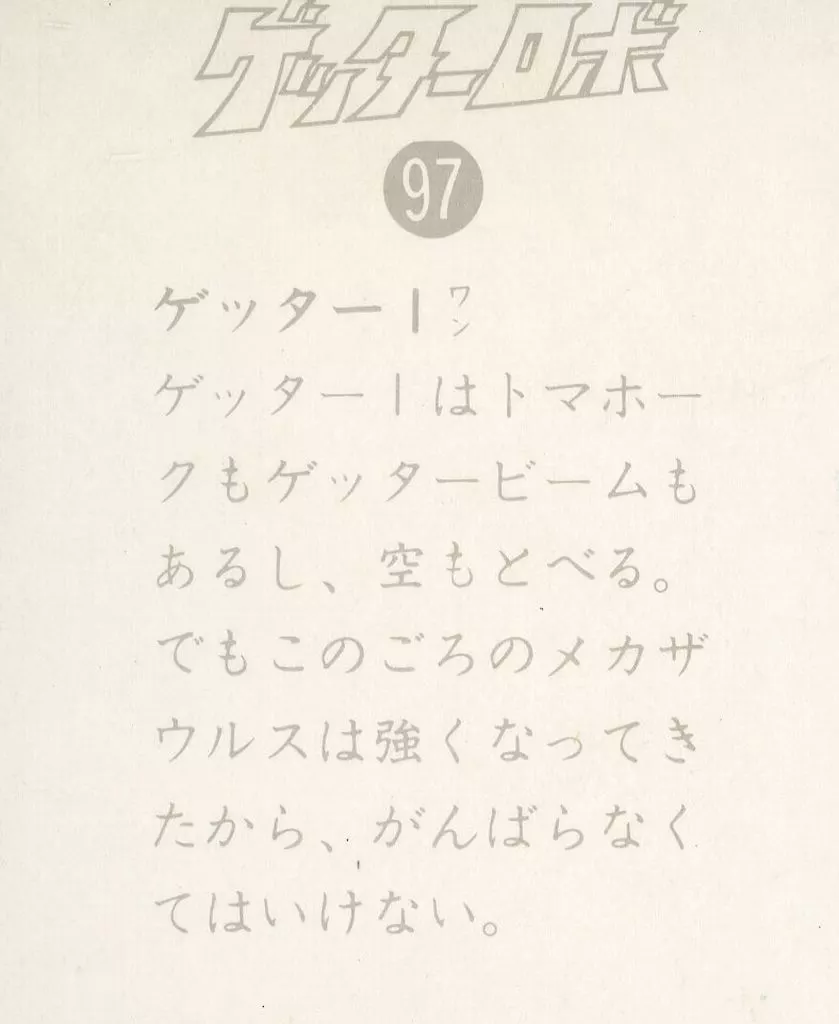 ゲッターロボ
97
ゲッターⅠワン
ゲッターⅠはトマホー
クもゲッタービームも
あるし、空もとべる。
でもこのごろのメカザ
ウルスは強くなってき
たから、がんばらなく
てはいけない。